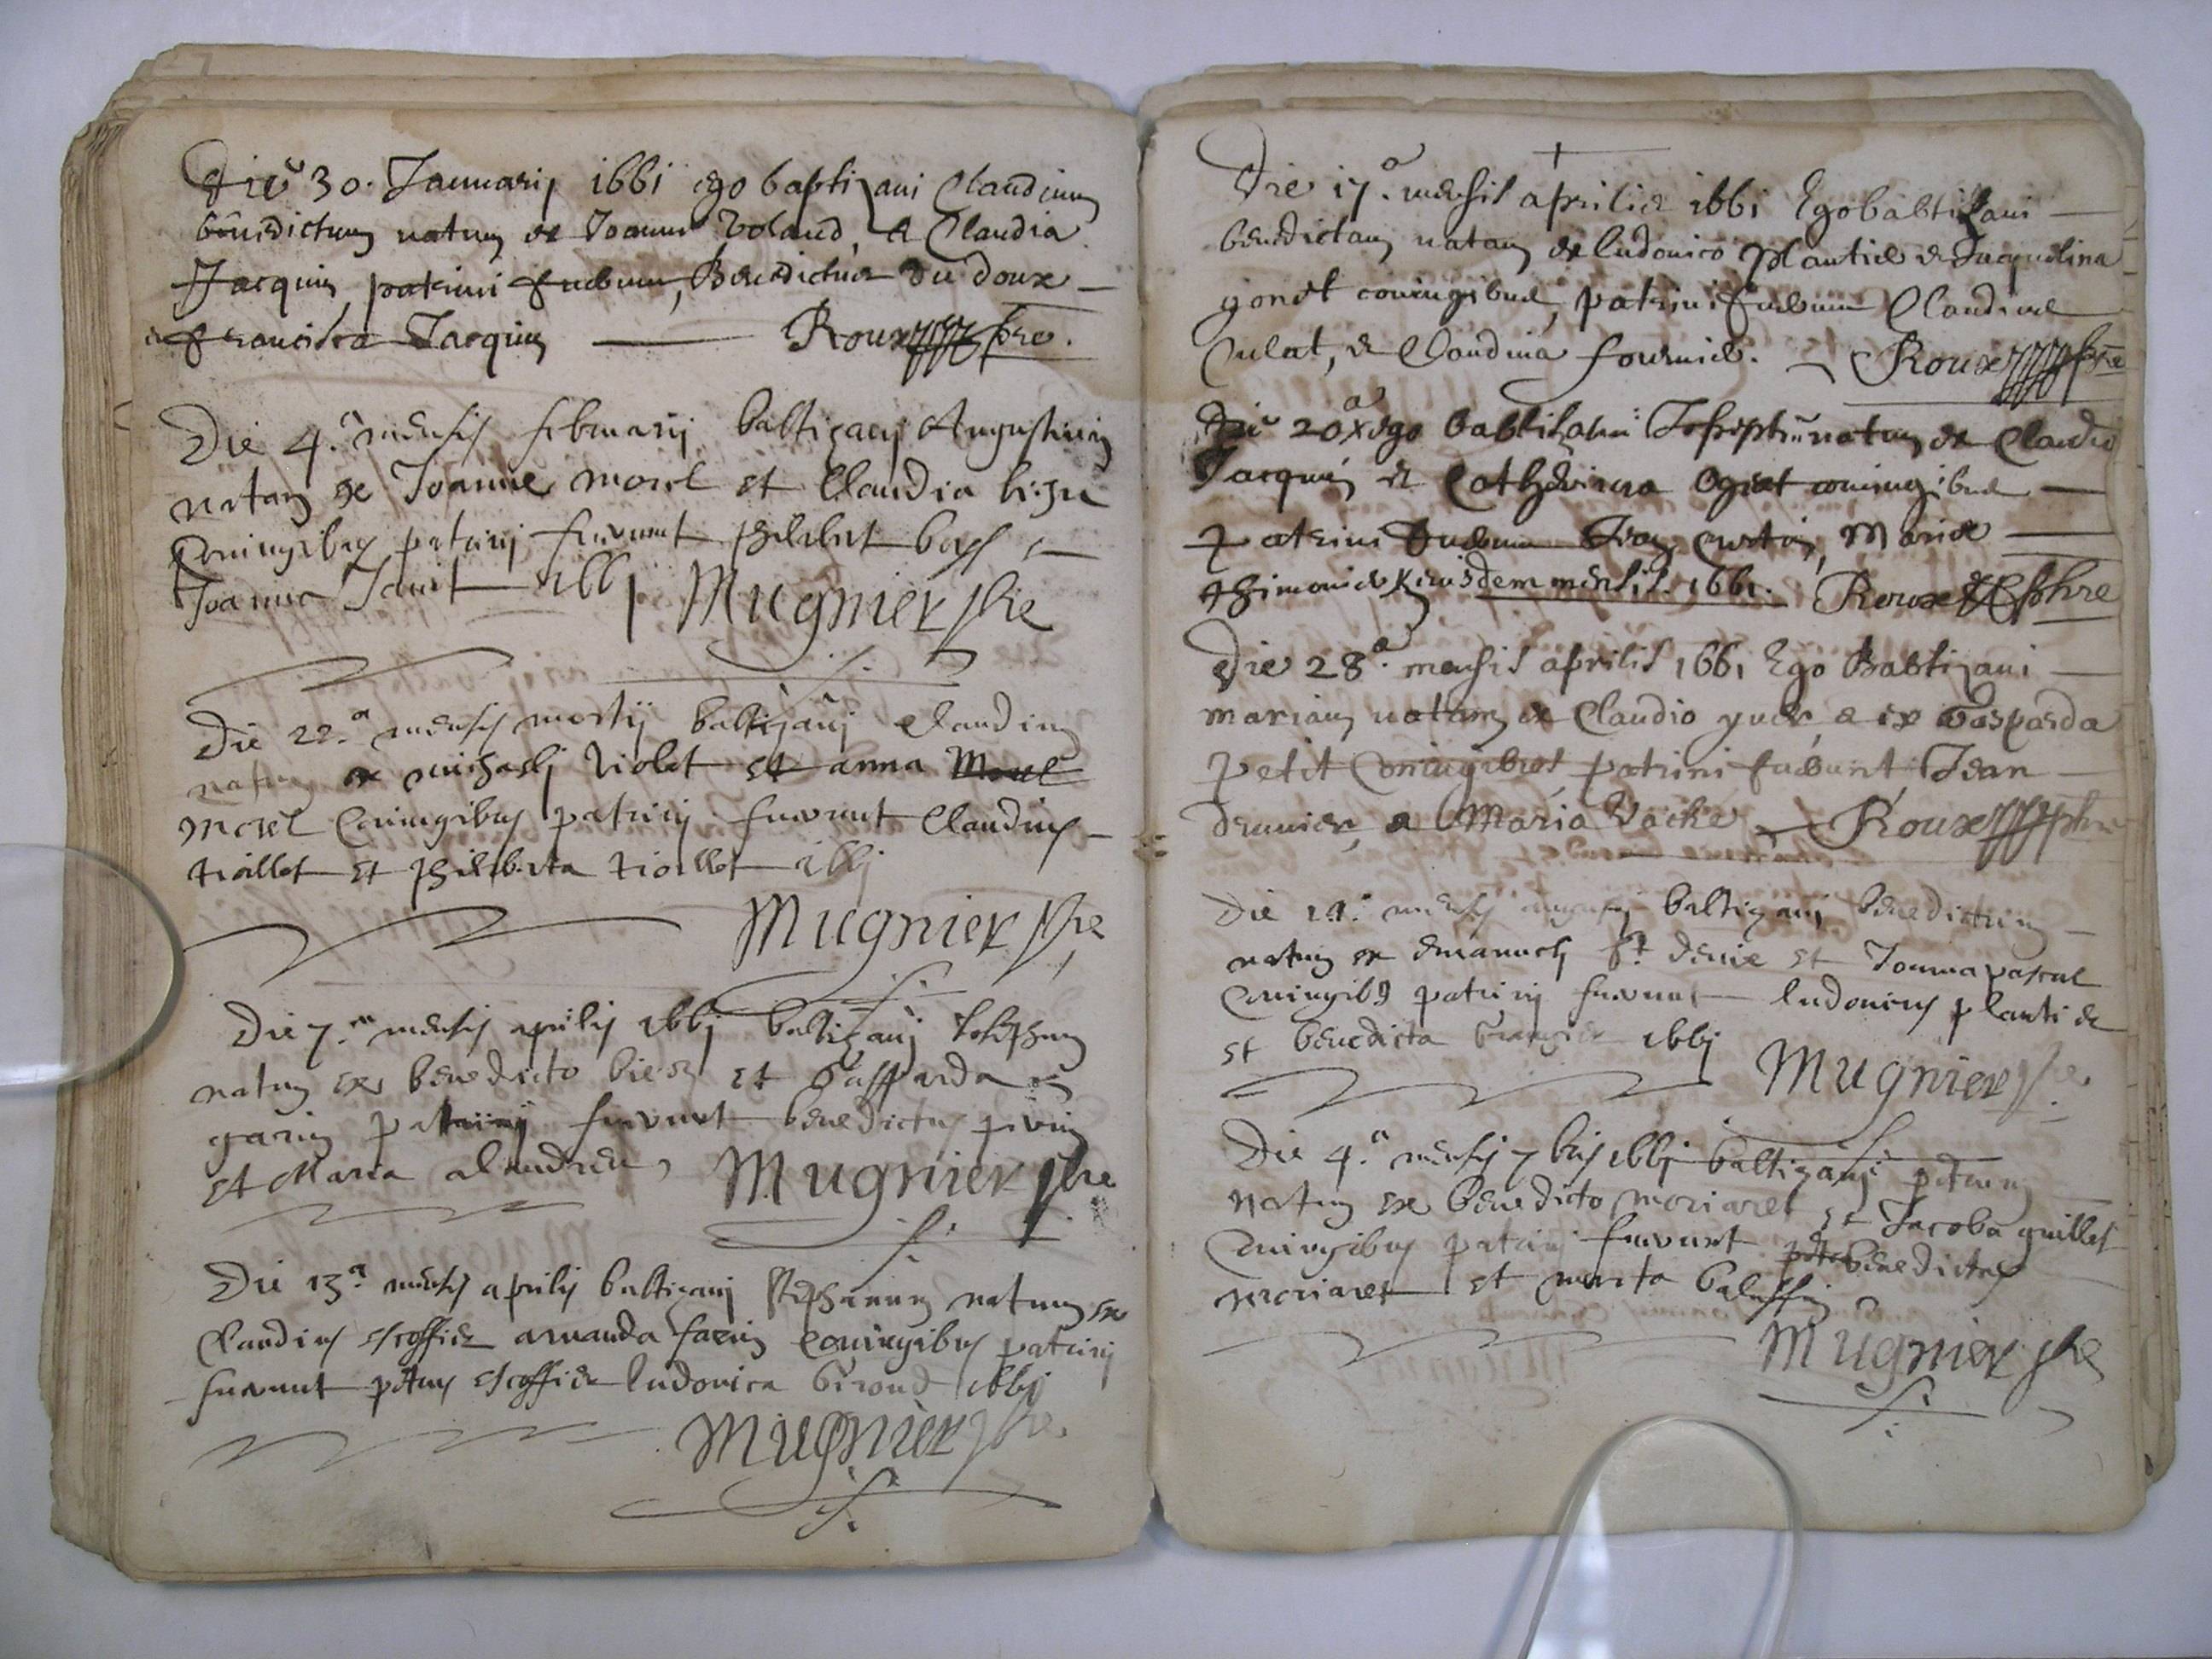 Die 30. Januarij 1661 ego baptizavi Claudium
benedictum natum ex Joanne Voland, & Claudia
Jacquin, patrini fuerunt, Benedictus du doux
& francisca Jacquin Roux pbre.
Die 4.a mensis februarij baltizavj Augustinum
natam ex Joanne morel et Claudia
Coniugibus patrinj fuerunt philibert
Joanna 1661 Mugnier pbre
Die 22.a mensis martij baltizavj Claudium
natum ex michaelj violet et anna Morel
Morel Coniugibus patrinj fuerunt Claudius
triollet et philiberta triollet 1661
Mugnier pbre
Die 7.a mensis aprilis 1661 baltizavj Josephum
natum ex benedicto et Gasparda
garin patrinij fuerunt benedictus
et Maria Mugnier pbre
Die 13.a mensis aprilis baltizavj Stephanum natum ex
Claudius escoffier amanda Coniugibus patrinj
fuerunt petrus escoffier ludovica Giroud 1661
Mugnier pbre
Die 17.a mensis aprilis 1661 Ego babtizavi
benedictam natam ex ludovico Plantier & Jacquelina
gonet coniugibus, patrini fuerunt Claudius
Culat, & Claudina fournier. Roux pbre
Die 20 a x ego babtizavi Josephum natum ex Claudio
Jacquin & Catherina Ogiet coniugibus
patrini fuerunt Jean, Marie
thimonier x eiusdem mensis. 1661. Roux pbre
Die 28.a mensis aprilis 1661 Ego Babtizavi
mariam natam ex Claudio & ex Gasparda
Petit Coniugibus patrini fuerunt Jean
& Maria Vache Roux pbre
Die mensis baltizavj benedictum
natum ex emanuelj St. denie et Joanna pascal
Coniugib9 patrinj fuerunt ludovicus plantier
et benedicta 1661 Mugnier pbre
Die 4.a mensis 7bris 1661 baltizavj petrum
natum ex benedicto moriaret et Jacoba guillet
Coniugibus patrinj fuerunt benedictus
moriaret et marta
Mugnier pbre